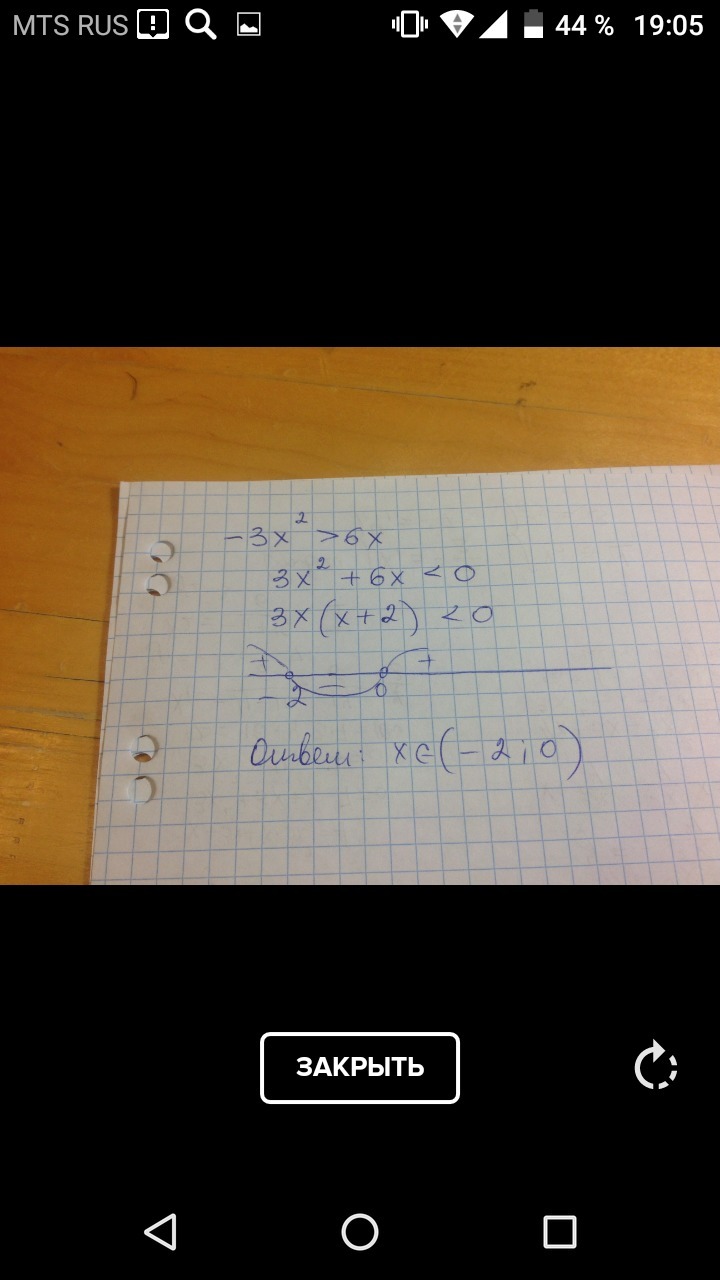 MTS RUS 44 % 19:05
-3x² >6x
3x² + 6x < 0
3x(x+2) < 0
+ - +
-2 0
Ответ: x∈(-2;0)
ЗАКРЫТЬ